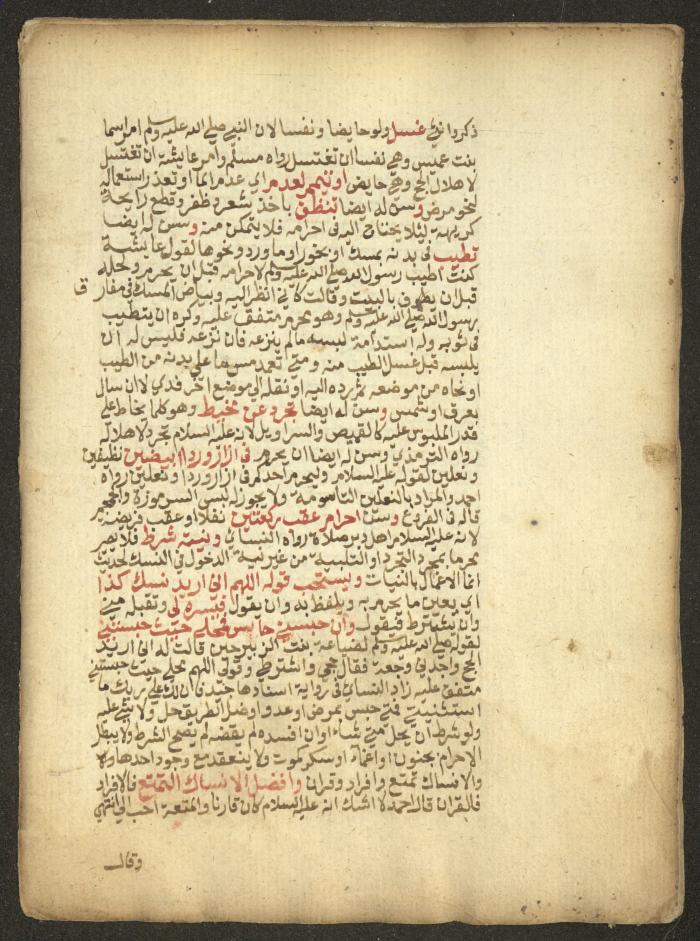 ذكر وانثى غسل ولو حايضا ونفسا لان النبي صلى الله عليه وسلم امر اسما
بنت عميس وهي نفسا ان تغتسل رواه مسلم وامر عايشة ان تغتسل
لاهلال الحج وهي حايض او تيمم لعدم اي عدم الما او تعذر استعماله
لنحو مرض وسن له ايضا تنظف باخذ شعر وظفر وقطع رايحة
كريهة ليلا يحتاج اليه في احرامه فلا يتمكن منه وسن له ايضا
تطيب في بدنه بمسك او بخور او ما ورد ونحوها لقول عايشة
كنت اطيب رسول الله صلى الله عليه وسلم لاحرامه قبل ان يحرم ولحله
قبل ان يطوف بالبيت وقالت كاني انظر الي وبياض المسك في مفارق
رسول الله صلى الله عليه وسلم وهو محرم متفق عليه وكره ان يتطيب
في ثوبه وله استدامة لبسه مالم ينزعه فان نزعه فليس له ان
يلبسه قبل غسل الطيب منه ومتى تعمد مس ما على بدنه من الطيب
او نحاه من موضعه ثم رده اليه او نقله الى موضع اخر فدى لا ان سال
بعرق او شمس وسن له ايضا تجرد عن مخيط وهو كلما يخاط على
قدر الملبوس عليه كالقميص والسراويل لانه عليه السلام تجرد لاهلاله
رواه الترمذي وسن له ايضا ان يحرم في ازار وردا ابيضين نظيفين
ونعلين لقوله عليه السلام وليحرم احدكم في ازار وردا ونعلين رواه
احمد والمراد بالنعلين التاسومة ولا يجوز له لبس السرموزة والجمجم
قاله في الفروع وسن احرام عقب ركعتين نفلا او عقب فريضة
لانه عليه السلام اهل دبر صلاة رواه النسائي ونيته شرط فلا يصير
محرما بمجرد التجرد او التلبية من غير نية الدخول في النسك لحديث
انما الاعمال بالنيات ويستحب قوله اللهم اني اريد نسك كذا
اي يعين ما يحرم به ويلفظ به وان يقول فيسره لي وتقبله مني
وان يشترط فيقول وان حبسني حابس فمحلي حيث حبستني
لقوله صلى الله عليه وسلم لضباعة بنت الزبير حين قالت له اني اريد
الحج واجدني وجعة فقال حجي واشترطي وقولي اللهم محلي حيث حبستني
متفق عليه زاد النسائي في رواية اسنادها جيد فان لك على ربك ما
استثنيت فمتى حبس بمرض او عدو او ضل الطريق حل ولا شي عليه
ولو شرط ان يحل متى شاء او ان افسده لم يقضه لم يصح الشرط ولا يبطل
الاحرام بجنون او اغماء او سكر كموت ولا ينعقد مع وجود احدها
والانساك تمتع وافراد وقران وافضل الانساك التمتع فالافراد
فالقران قال احمد لا اشك انه عليه السلام كان قارنا والمتعة احب الي انتهى
وقال